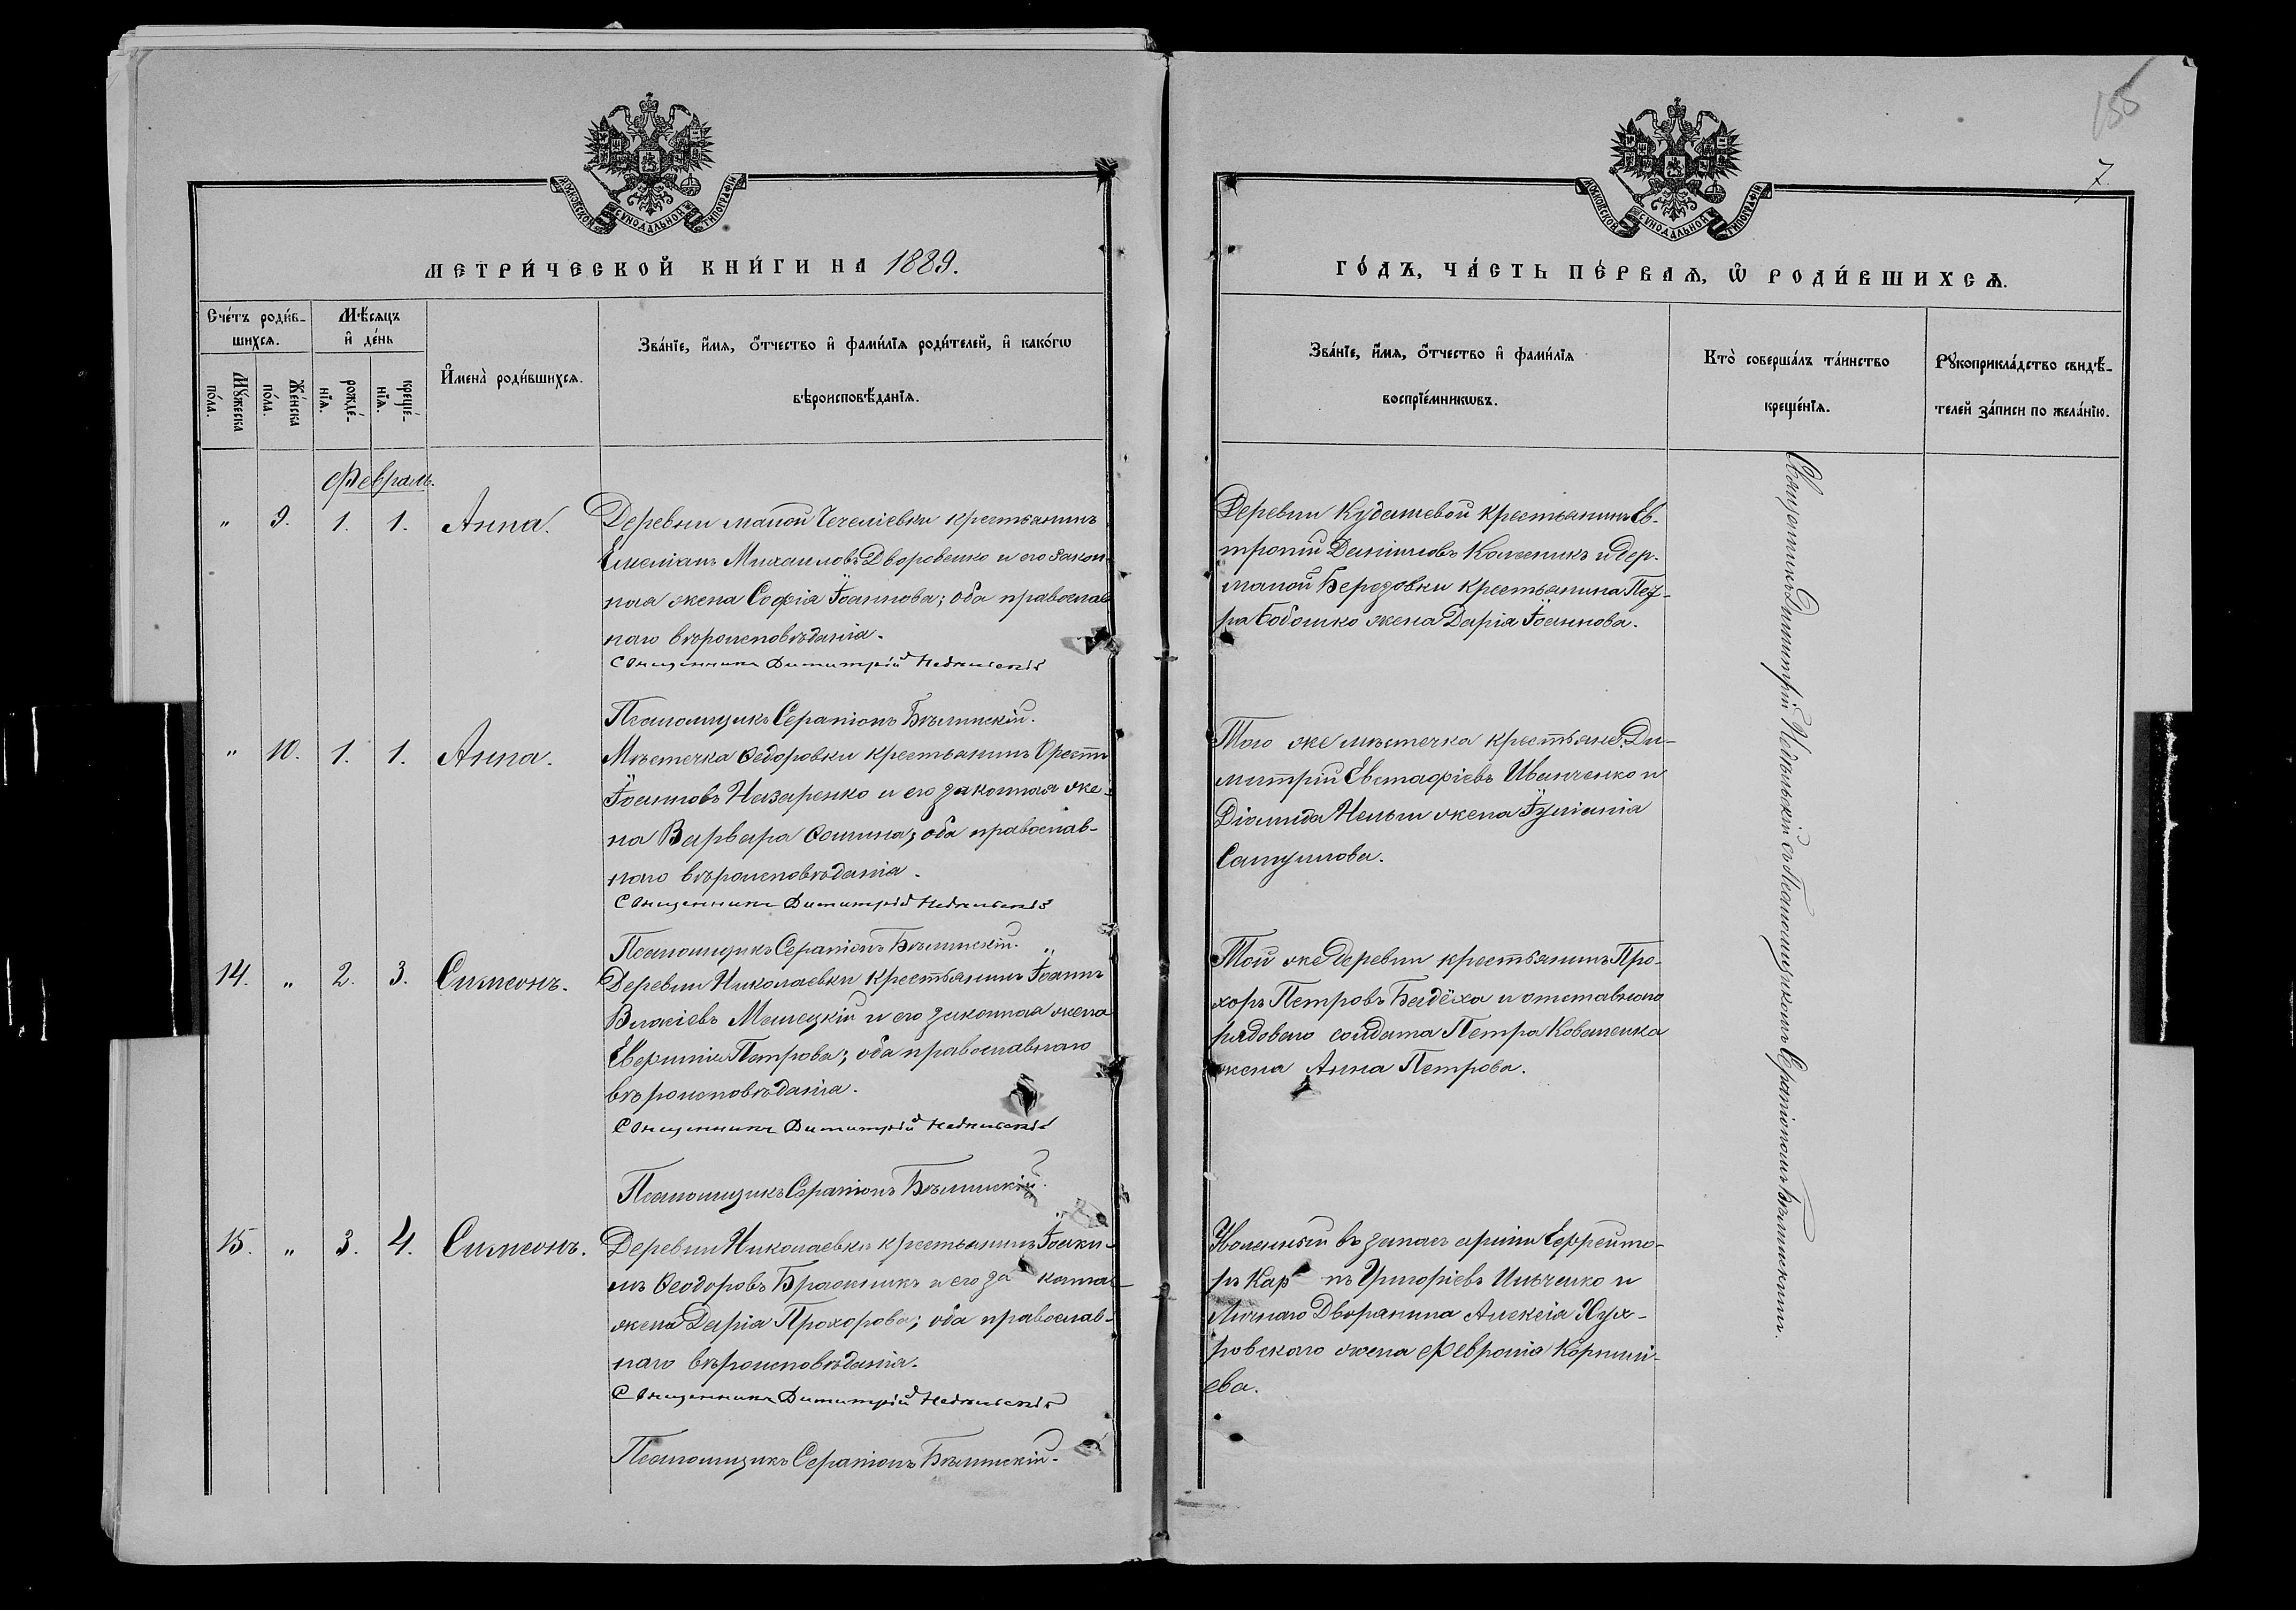 155
7.
МОСКОВСКОЙ СѴНОДАЛЬНОЙ ТИПОГРАФІИ
МОСКОВСКОЙ СѴНОДАЛЬНОЙ ТИПОГРАФІИ
МЕТРИ́ЧЕСКОЙ КНИ́ГИ НА 1889.
ГО́ДЪ, ЧА́СТЬ ПЕ́РВАѦ, Ѿ РОДИ́ВШИХСѦ.
Сче́тъ роди́в-
шихсѧ.
Мꙋ́жеска по́ла.
Же́нска по́ла.
Мѣ́сѧцъ
и҆ де́нь
рожде́-
нїѧ.
креще́-
нїѧ.
И҆мена̀ роди́вшихсѧ.
Зва́нїе, и҆́мѧ, ѻ҆́тчество и҆ фами́лїѧ роди́телей, и҆ како́гѡ
вѣроисповѣ́данїѧ.
Зва́нїе, и҆́мѧ, ѻ҆́тчество и҆ фами́лїѧ
воспрїе́мникѡвъ.
Кто̀ соверша́лъ та́инство
креще́нїѧ.
Рꙋкоприкла́дство свидѣ́-
телей за́писи по жела́нїю.
Февраль.
" 9. 1. 1. Анна.
Деревни малой Чечеліевки крестьянинъ
Емеліанъ Михаиловъ Дворовенко и его закон-
ная жена Софія Іоаннова; оба православ
наго вѣроисповѣданія.
Священникъ Димитрій Недѣльскій
Псаломщикъ Серапіонъ Бѣлинскій.
Деревни Кудашевой крестьянинъ Ев-
тропій Даніиловъ Колесникъ и дер.
малой Березовки крестьянина Пет-
ра Бобошко жена Дарія Іоаннова.
" 10. 1. 1. Анна.
Мѣстечка Ѳедоровки крестьянинъ Орестъ
Іоанновъ Назаренко и его законная же-
на Варвара Ѳомина; оба православ-
наго вѣроисповѣданія.
Священникъ Димитрій Недѣльскій
Псаломщикъ Серапіонъ Бѣлинскій.
Того же мѣстечка крестьяне: Ди-
митрій Евстафіевъ Иванченко и
Діомида жена Іуліанія
14. " 2. 3. Симеонъ.
Деревни Николаевки крестьянинъ Іоаннъ
Власіевъ Малецкій и его законная жена
Евфимія Петрова; оба православнаго
вѣроисповѣданія.
Священникъ Димитрій Недѣльскій
Псаломщикъ Серапіонъ Бѣлинскій.
Той же деревни крестьянинъ Про-
хоръ Петровъ Бадёха и отставного
рядового солдата Петра Коваленка
жена Анна Петрова.
15. " 3. 4. Симеонъ.
Деревни Николаевки крестьянинъ Іоаки-
мъ Ѳеодоровъ Бражникъ и его за конная
жена Дарія Прохорова; оба православ-
наго вѣроисповѣданія.
Священникъ Димитрій Недѣльскій
Псаломщикъ Серапіонъ Бѣлинскій.
Уволенный въ запасъ арміи Еффрейто-
ръ Кар пъ Григоріевъ Ильченко и
Личнаго Дворянина Алексія
жена Февронія Корнилі-
ева.
Священникъ Димитрій Недѣльскій съ Псаломщикомъ Серапіономъ Бѣлинскимъ.